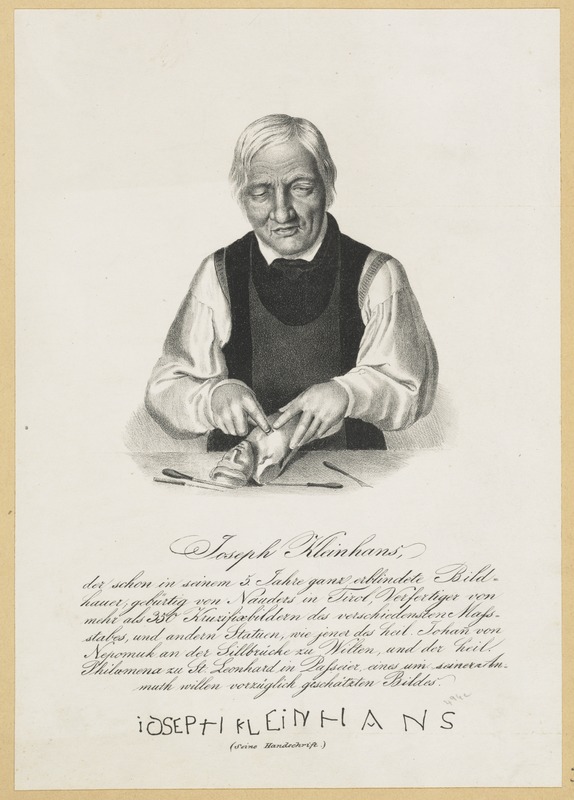 Joseph Kleinhans,
der schon in seinem 5. Jahre ganz erblindete Bild-
hauer, gebürtig von Nauders in Tirol, Verfertiger von
mehr als 350 Kruzifixbildern des verschiedensten Mass-
stabes, und andern Statuen, wie jener des heil. Johan von
Nepomuk an der Sillbrücke zu Wilten, und der heil.
Philamena zu St. Leonhard in Passeier, eines um seiner An-
muth willen vorzüglich geschätzten Bildes.
iOSEPH KLEiNHANS
(Seine Handschrift.)